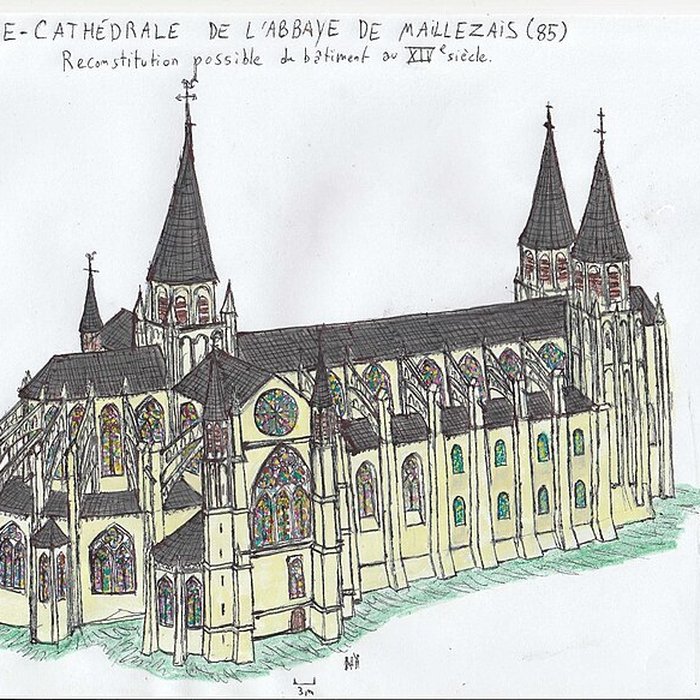 E-CATHÉDRALE DE L'ABBAYE DE MAILLEZAIS (85)
Reconstitution possible du bâtiment au XIVe siècle.
3m